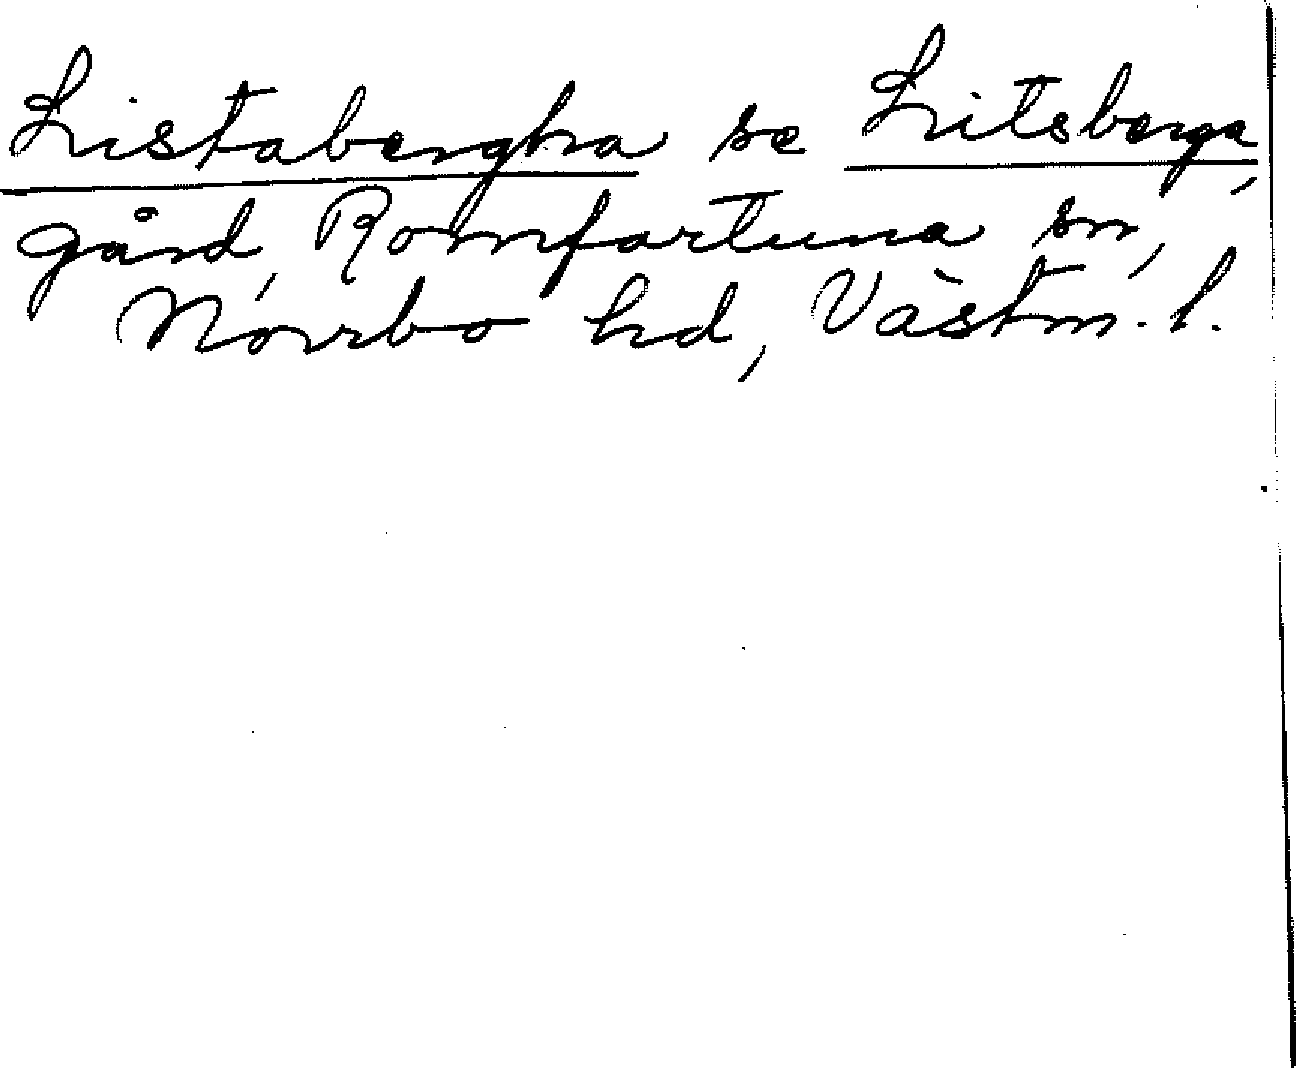 Listabergha se Litsberga,
gård, Romfartuna sn,
Norrbo hd, Västm. l.